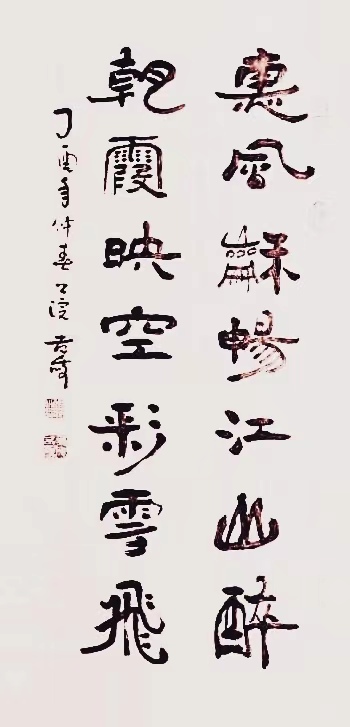 惠風龢暢江山醉
朝霞映空彩雲飛
丁酉年仲春浣